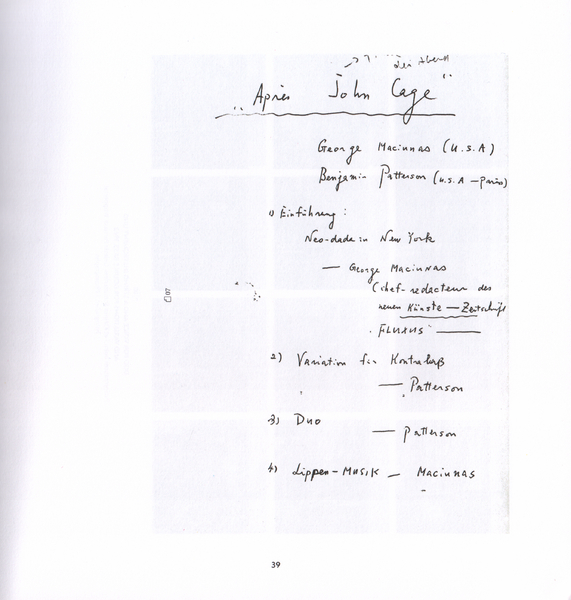 der Abend
„Après John Cage"
George Maciunas (U.S.A)
Benjamin Patterson (U.S.A — Paris)
1) Einführung :
Neo-dada in New York
— George Maciunas
(Chef-redacteur des
neuen Künste — Zeitschrift
FLUXUS
2) Variation für Kontrabaß
— Patterson
3) Duo
— Patterson
4) Lippen-Musik — Maciunas
39